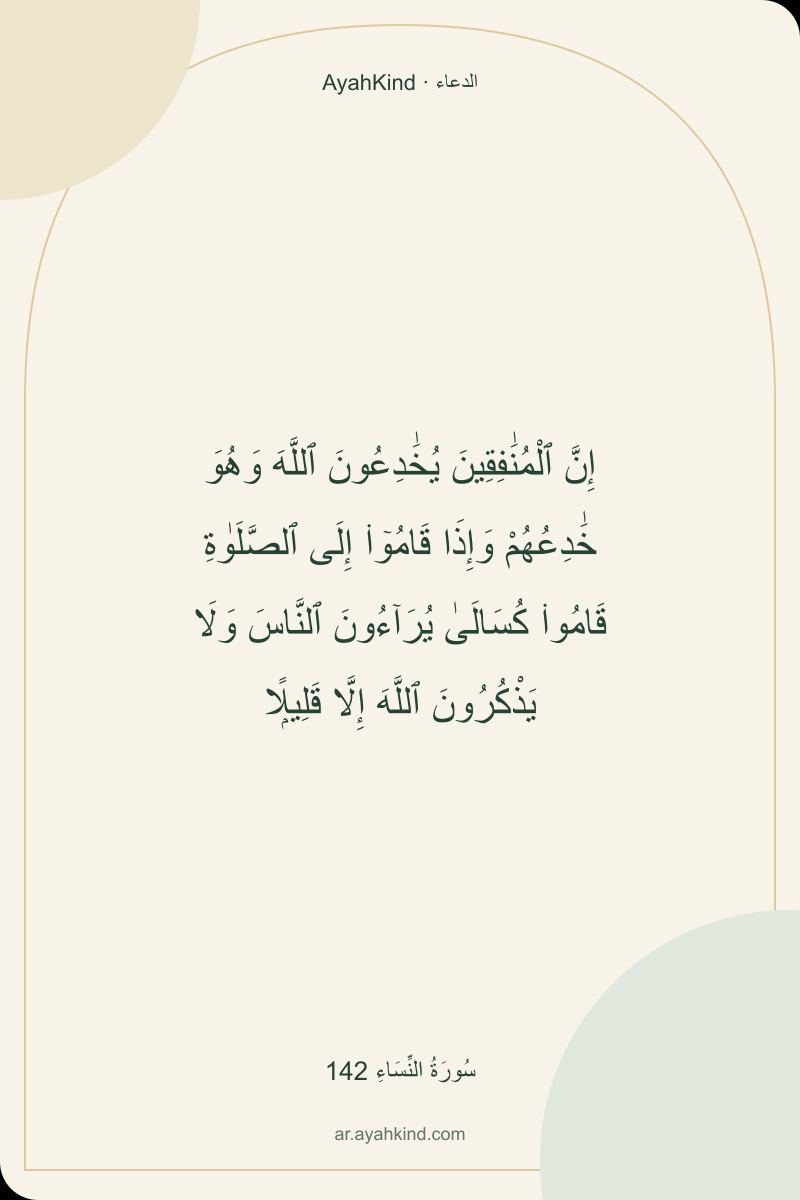 AyahKind · الدعاء
إِنَّ ٱلْمُنَٰفِقِينَ يُخَٰدِعُونَ ٱللَّهَ وَهُوَ
خَٰدِعُهُمْ وَإِذَا قَامُوٓا۟ إِلَى ٱلصَّلَوٰةِ
قَامُوا۟ كُسَالَىٰ يُرَآءُونَ ٱلنَّاسَ وَلَا
يَذْكُرُونَ ٱللَّهَ إِلَّا قَلِيلًۭا
سُورَةُ النِّسَاءِ 142
ar.ayahkind.com